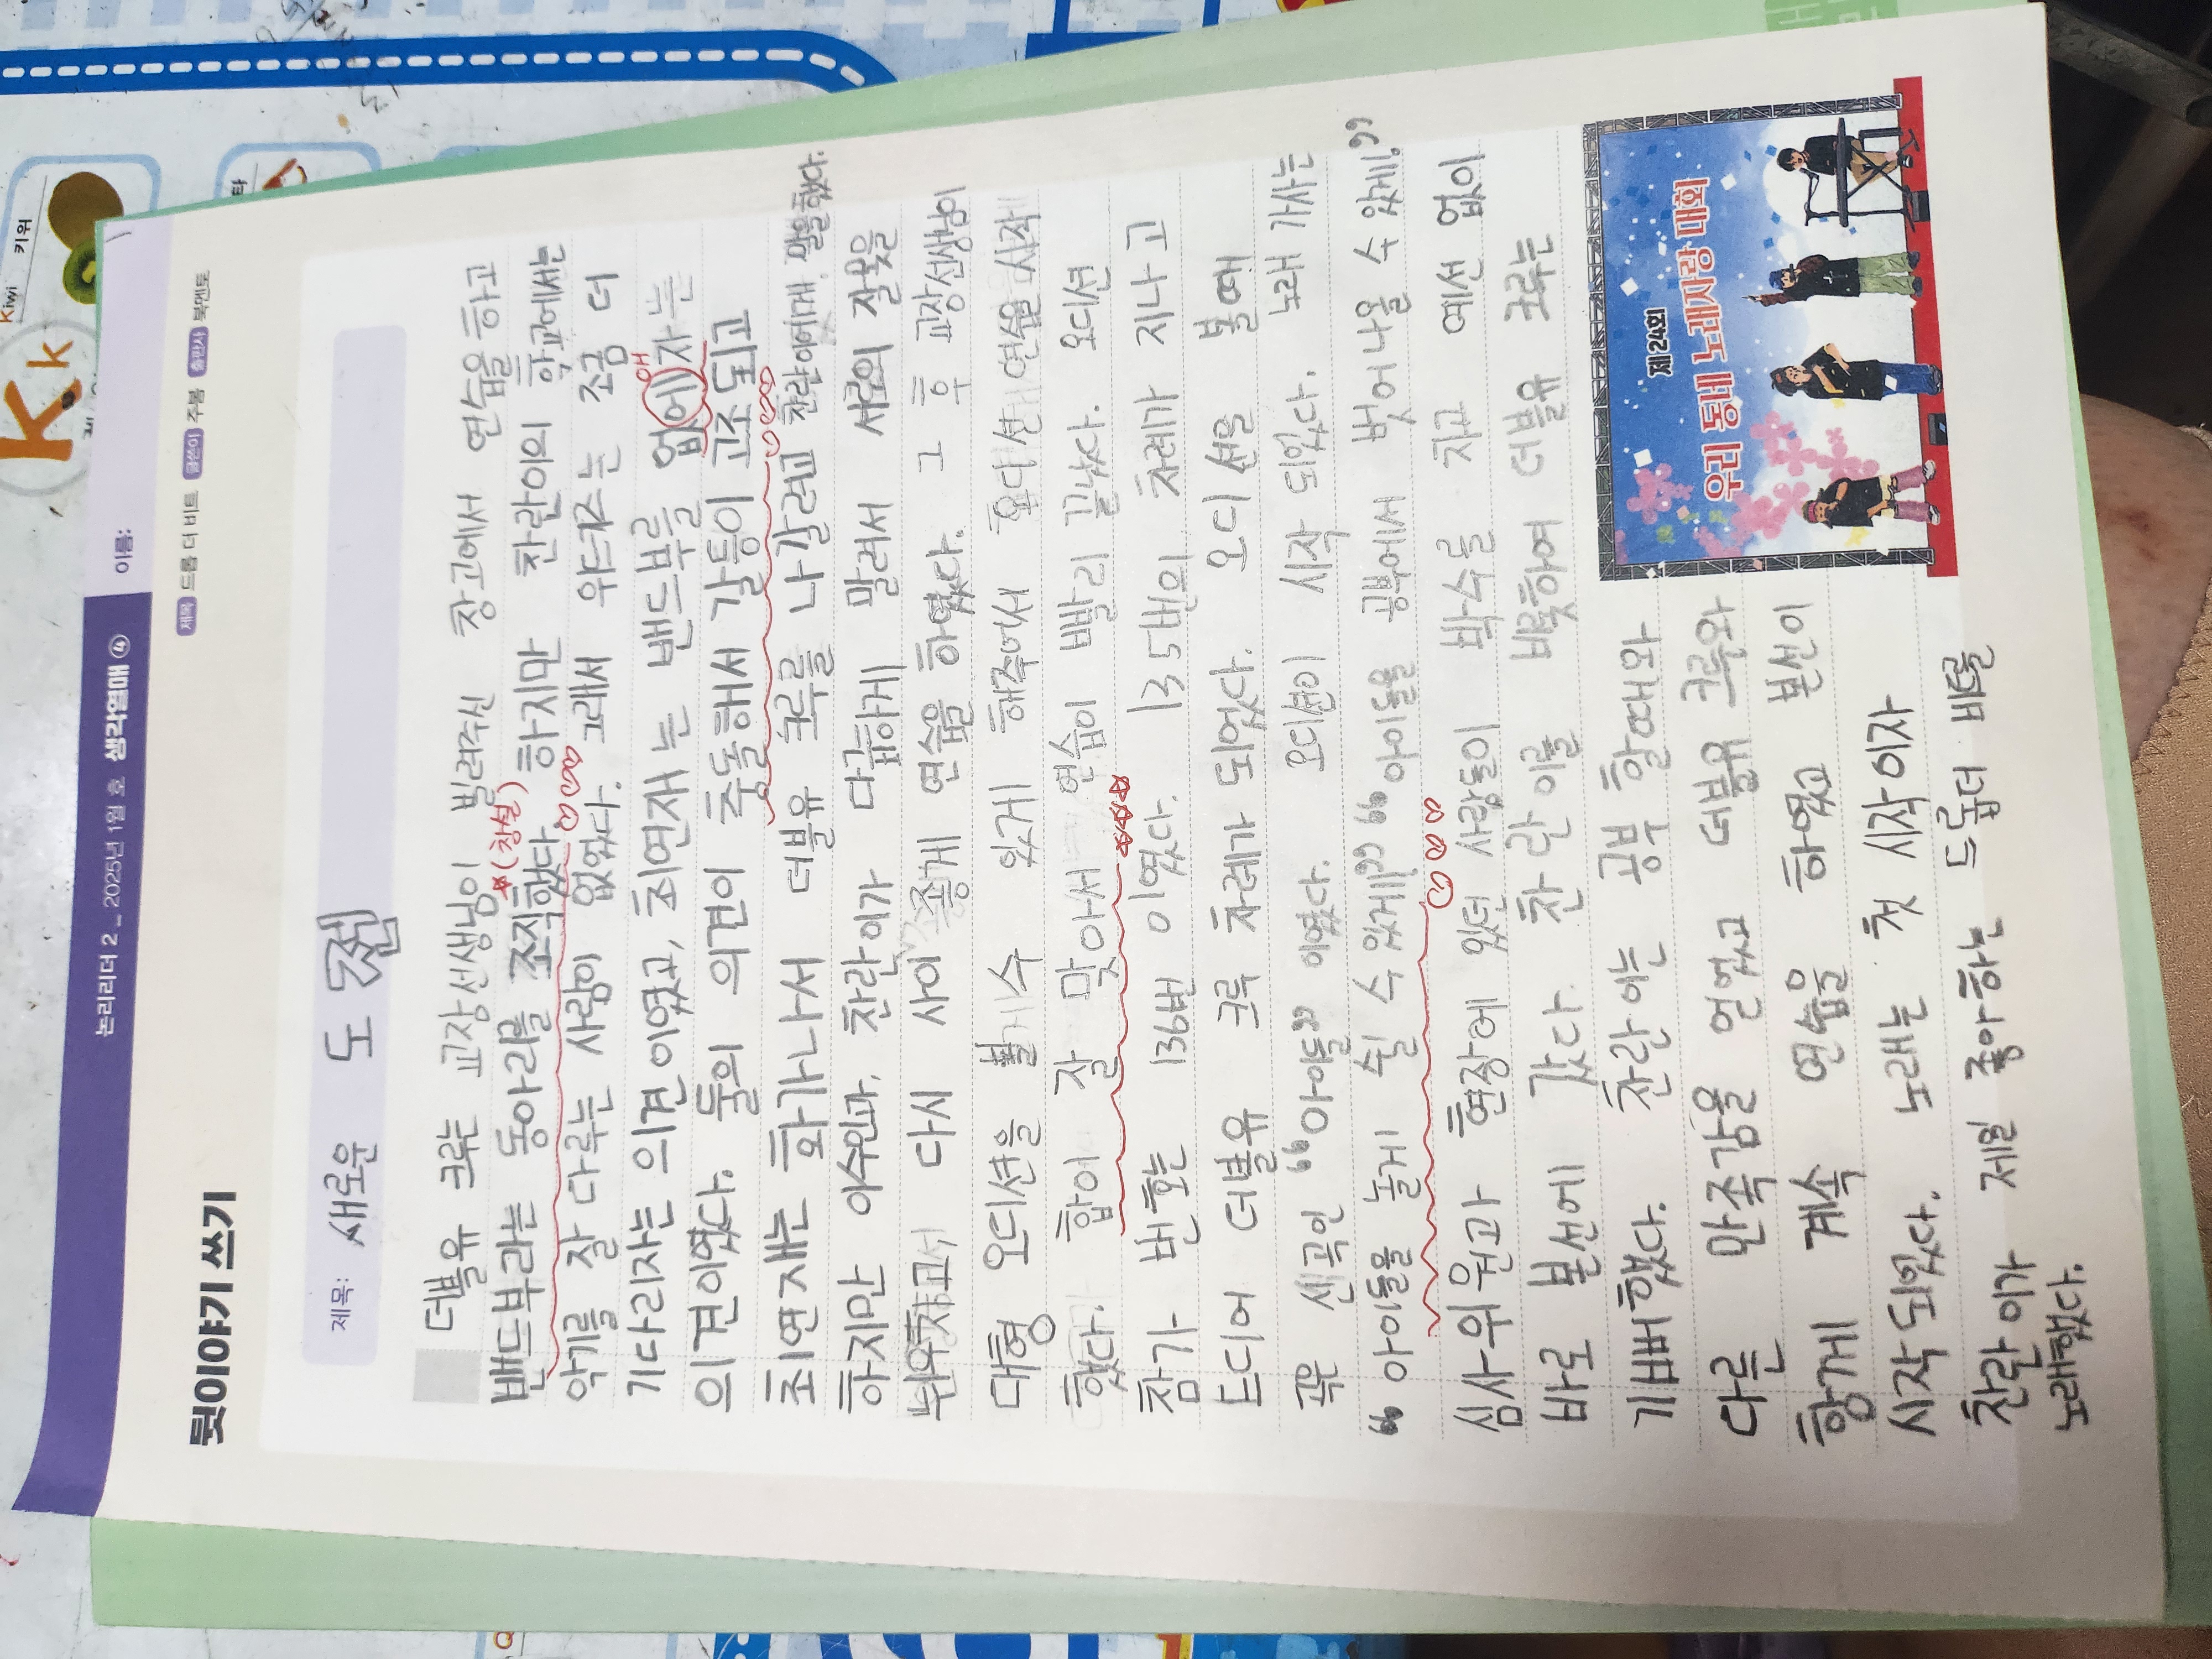 논리리더 2 _ 2025년 1월 호 생각열매 ④ 이름:
뒷이야기 쓰기
제목 드롭 더 비트 글쓴이 주봉 출판사 북멘토
제목: 새로운 도전
더블유 크루는 교장선생님이 빌려주신 창고에서 연습을 하고
(창설)
밴드부라는 동아리를 조직했다 하지만 찬란이의 학교에서는
악기를 잘 다루는 사람이 없었다. 그래서 위드키즈는 조금 더
애
기다리자는 의견이였고, 최연재는 밴드부를 없에자는
의견이였다. 둘의 의견이 충돌해서 갈등이 고조 되고
최연재는 화가나서 더블유 크루를 나갈려고 찬란이에게 말을했다.
하지만 이수인과, 찬란이가 다급하게 말려서 서로의 잘못을
뉘우치고서 다시 사이 좋게 연습을 하였다. 그 후 교장선생님이
대형 오디션을 볼 수 있게 해주어서 오디션 연습을 시작
했다. 합이 잘 맞아서 연습이 빨리 끝났다. 오디션
참가 번호는 136번 이였다. 135번의 차례가 지나고
드디어 더블유 크루 차례가 되었다. 오디션을 볼때
곡은 신곡인 “아이돌” 이였다. 오디션이 시작 되었다. 노래 가사는
“아이돌을 놀게 쉴 수 있게!” “아이돌을 공부에서 벗어나올 수 있게!”
심사위원과 현장에 있던 사람들이 박수를 치고 예선 없이
바로 본선에 갔다. 찬란이를 비롯하여 더블유 크루는
기뻐했다. 찬란이는 공부 할때와
다른 만족감을 얻었고 더블유 크루와
함께 계속 연습을 하였고 본선이
시작되었다. 노래는 첫 시작이자
찬란이가 제일 좋아하는 드롭더 비트를
노래했다.
제24회
우리 동네 노래자랑 대회
Kk
Kiwi 키위